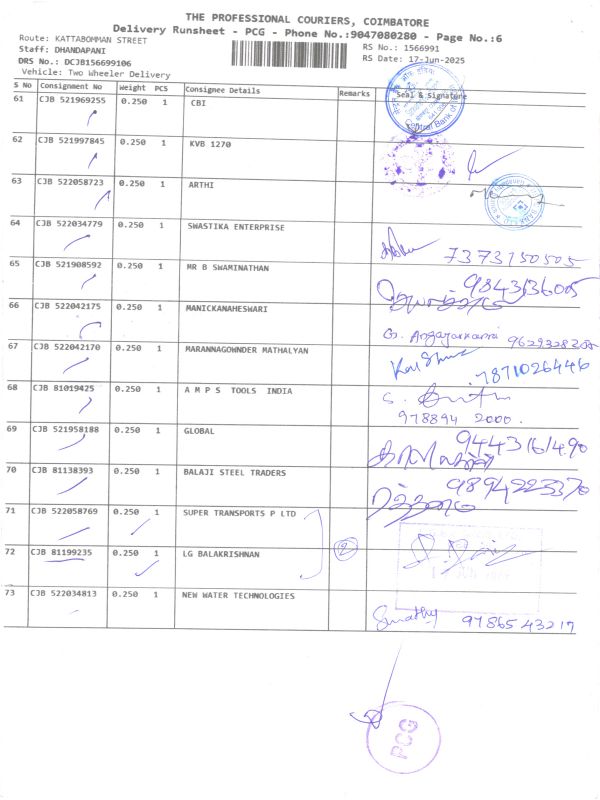 THE PROFESSIONAL COURIERS, COIMBATORE
Delivery Runsheet - PCG - Phone No.:9047080280 - Page No.:6
Route: KATTABOMMAN STREET
RS No.: 1566991
Staff: DHANDAPANI
RS Date: 17-Jun-2025
DRS No.: DCJB156699106
Vehicle: Two Wheeler Delivery
S No Consignment No Weight PCS Consignee Details Remarks Seal & Signature
61 CJB 521969255 0.250 1 CBI
Central Bank of
62 CJB 521997845 0.250 1 KVB 1270
63 CJB 522058723 0.250 1 ARTHI
64 CJB 522034779 0.250 1 SWASTIKA ENTERPRISE
7373150505
65 CJB 521908592 0.250 1 MR B SWAMINATHAN
9843136005
66 CJB 522042175 0.250 1 MANICKANAHESWARI
67 CJB 522042170 0.250 1 MARANNAGOWNDER MATHALYAN
7871026446
68 CJB 81019425 0.250 1 A M P S TOOLS INDIA
978894 2000.
69 CJB 521958188 0.250 1 GLOBAL
9443161490
70 CJB 81138393 0.250 1 BALAJI STEEL TRADERS
9894223370
71 CJB 522058769 0.250 1 SUPER TRANSPORTS P LTD
72 CJB 81199235 0.250 1 LG BALAKRISHNAN
2
73 CJB 522034813 0.250 1 NEW WATER TECHNOLOGIES
9786543217
PCG